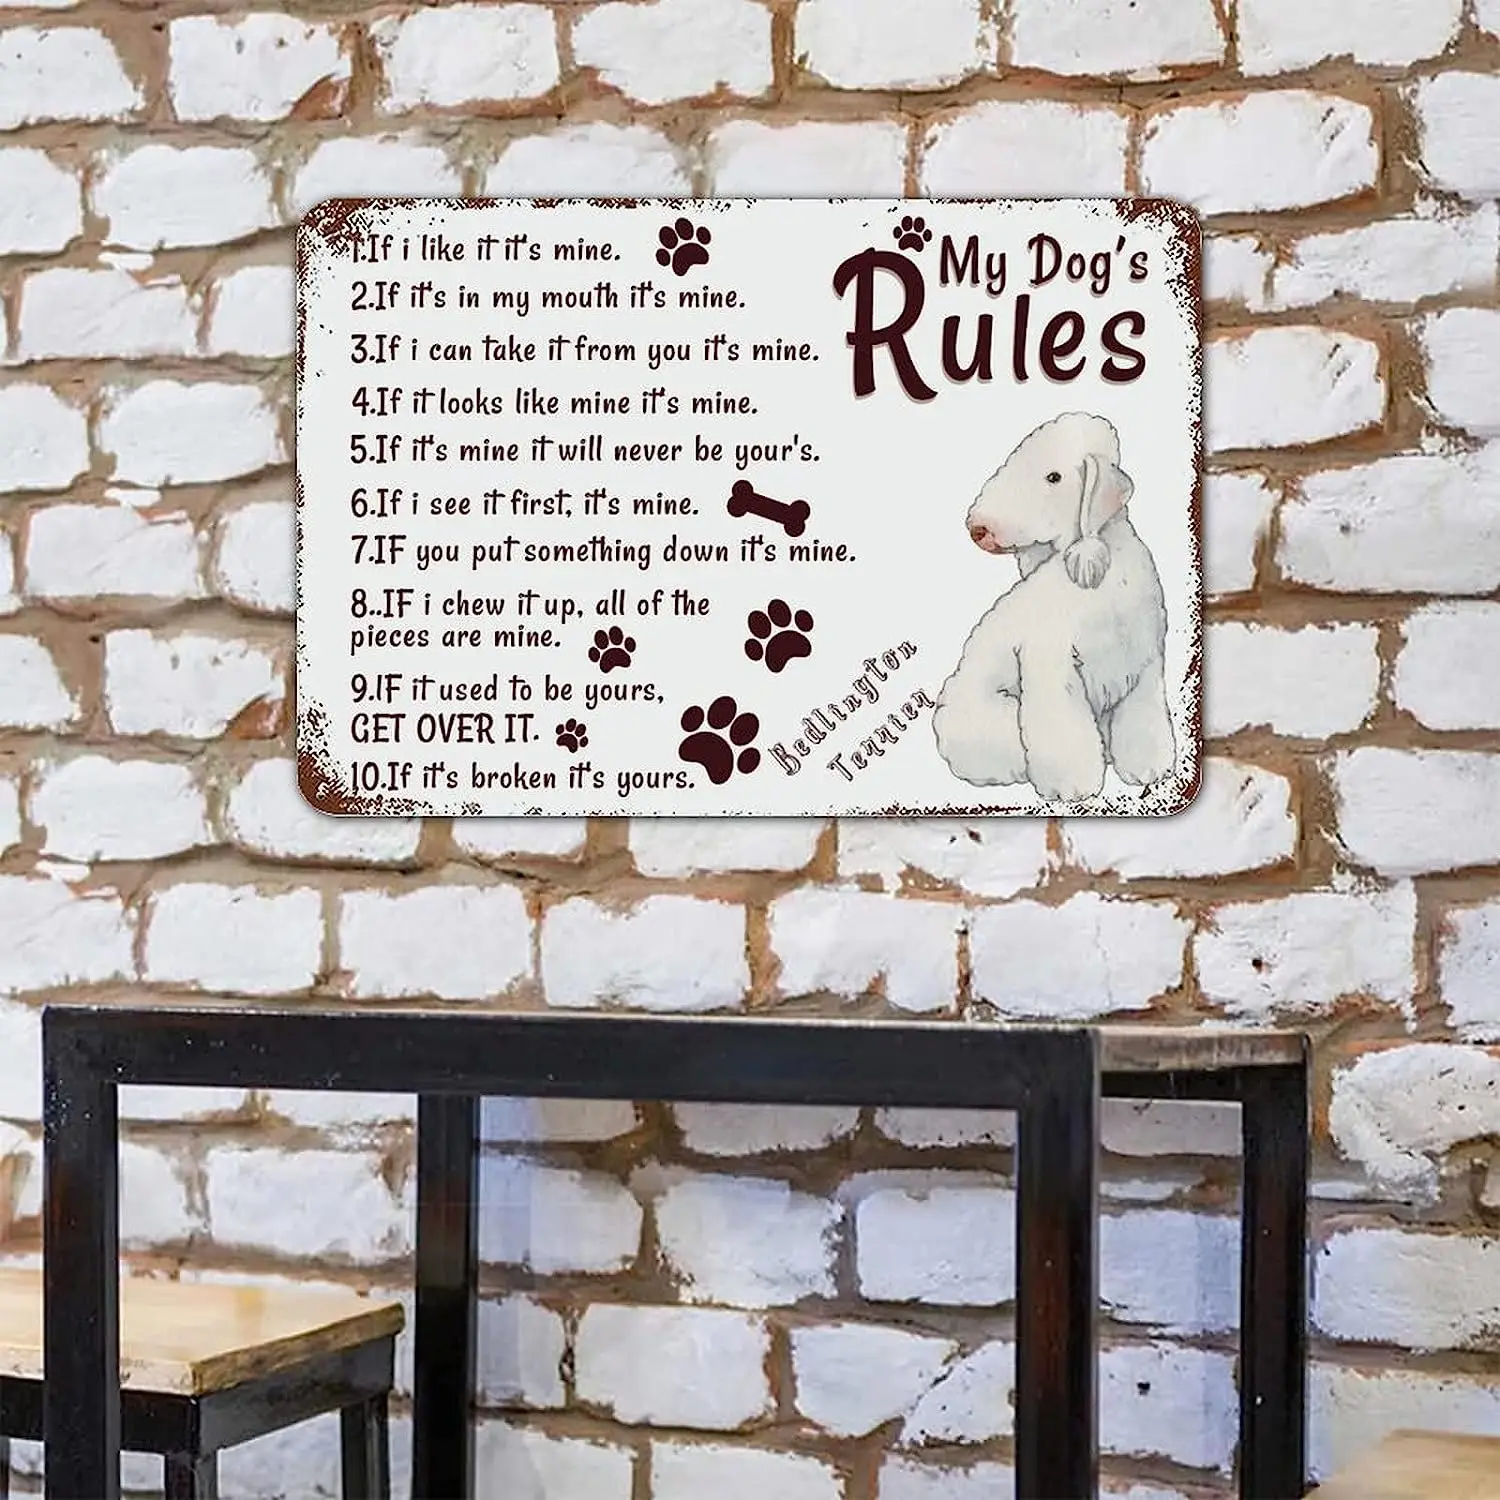 My Dog's
Rules
1.If i like it it's mine.
2.If it's in my mouth it's mine.
3.If i can take it from you it's mine.
4.If it looks like mine it's mine.
5.If it's mine it will never be your's.
6.If i see it first, it's mine.
7.IF you put something down it's mine.
8..IF i chew it up, all of the
pieces are mine.
9.IF it used to be yours,
GET OVER IT.
10.If it's broken it's yours.
Bedlington
Terrier